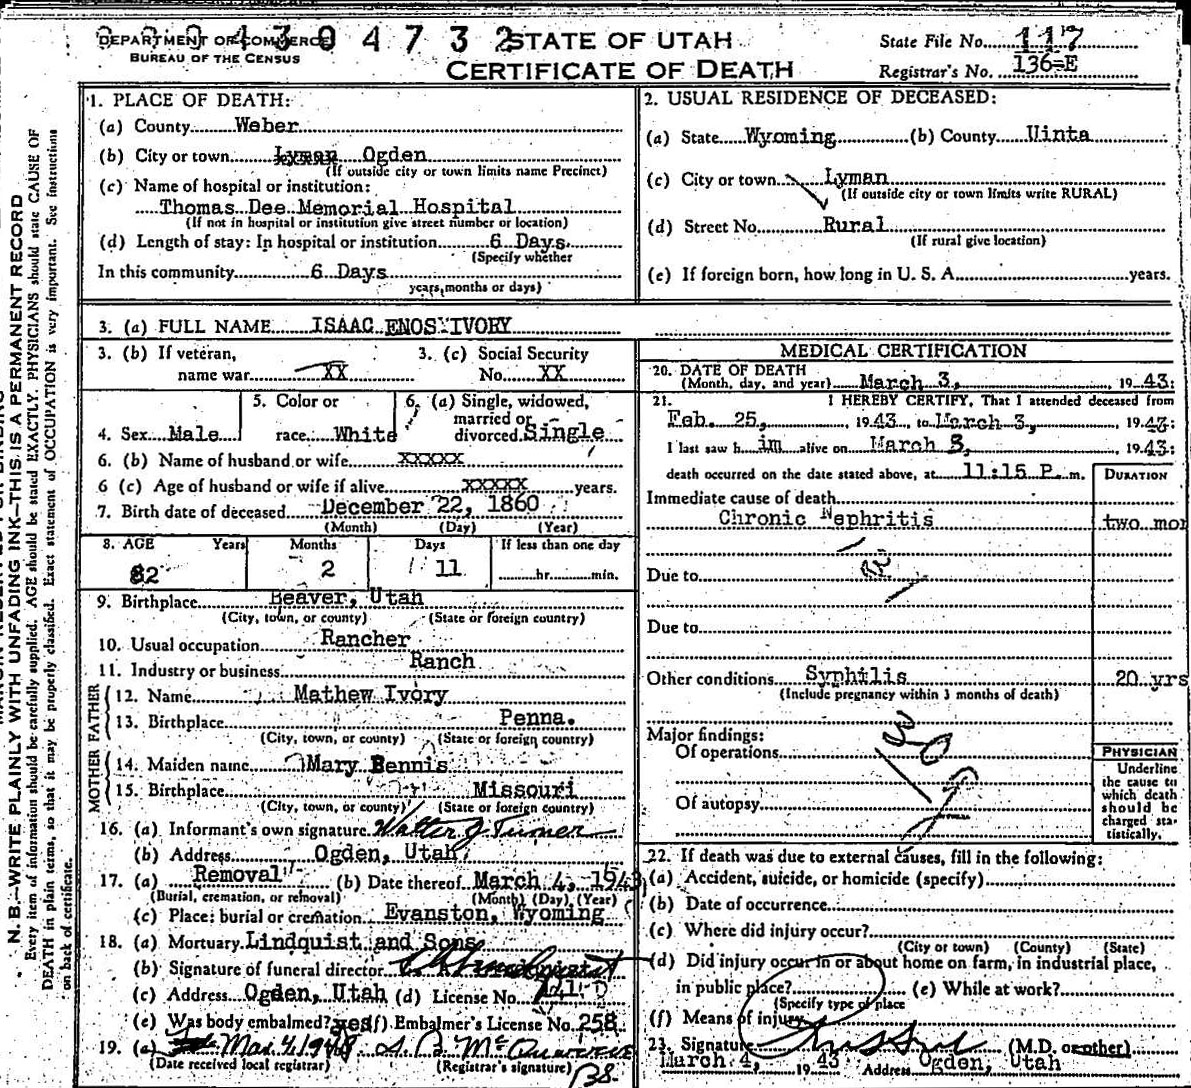 0 0 0 4 3 0 4 7 3 2
DEPARTMENT OF COMMERCE
BUREAU OF THE CENSUS
STATE OF UTAH
CERTIFICATE OF DEATH
State File No. 117
Registrar's No. 136-E
N. B.—WRITE PLAINLY WITH UNFADING INK—THIS IS A PERMANENT RECORD
Every item of information should be carefully supplied. AGE should be stated EXACTLY. PHYSICIANS should state CAUSE OF
DEATH in plain terms, so that it may be properly classified. Exact statement of OCCUPATION is very important. See instructions
on back of certificate.
1. PLACE OF DEATH:
(a) County Weber
(b) City or town Lyman Ogden
(If outside city or town limits name Precinct)
(c) Name of hospital or institution:
Thomas Dee Memorial Hospital
(If not in hospital or institution give street number or location)
(d) Length of stay: In hospital or institution 6 Days
(Specify whether
In this community 6 Days
years, months or days)
2. USUAL RESIDENCE OF DECEASED:
(a) State Wyoming (b) County Uinta
(c) City or town Lyman
(If outside city or town limits write RURAL)
(d) Street No. Rural
(If rural give location)
(e) If foreign born, how long in U. S. A. years.
3. (a) FULL NAME ISAAC ENOS IVORY
3. (b) If veteran,
name war XX
3. (c) Social Security
No. XX
4. Sex Male
5. Color or
race White
6. (a) Single, widowed,
married or
divorced Single
6. (b) Name of husband or wife XXXXX
6 (c) Age of husband or wife if alive XXXXX years.
7. Birth date of deceased December 22, 1860
(Month) (Day) (Year)
8. AGE Years Months Days If less than one day
82 2 11 hr. min.
9. Birthplace Beaver, Utah
(City, town, or county) (State or foreign country)
10. Usual occupation Rancher
11. Industry or business Ranch
FATHER
12. Name Mathew Ivory
13. Birthplace Penna.
(City, town, or county) (State or foreign country)
MOTHER
14. Maiden name Mary Bennis
15. Birthplace Missouri
(City, town, or county) (State or foreign country)
16. (a) Informant's own signature Walter J Turner
(b) Address Ogden, Utah
17. (a) Removal (b) Date thereof March 4, 1943
(Burial, cremation, or removal) (Month) (Day) (Year)
(c) Place: burial or cremation Evanston, Wyoming
18. (a) Mortuary Lindquist and Sons
(b) Signature of funeral director
(c) Address Ogden, Utah (d) License No.
(e) Was body embalmed? yes (f) Embalmer's License No. 258
19. (a) Mar 4, 1943
(Date received local registrar) (Registrar's signature)
MEDICAL CERTIFICATION
20. DATE OF DEATH
(Month, day, and year) March 3, 1943:
21. I HEREBY CERTIFY, That I attended deceased from
Feb. 25, 1943, to March 3, 1943:
I last saw him alive on March 3, 1943:
death occurred on the date stated above, at 11:15 P. m.
DURATION
Immediate cause of death
Chronic Nephritis two mon
Due to
Due to
Other conditions Syphilis 20 yrs
(Include pregnancy within 3 months of death)
Major findings:
Of operations
Of autopsy
PHYSICIAN
Underline
the cause to
which death
should be
charged sta-
tistically.
22. If death was due to external causes, fill in the following:
(a) Accident, suicide, or homicide (specify)
(b) Date of occurrence
(c) Where did injury occur?
(City or town) (County) (State)
(d) Did injury occur in or about home on farm, in industrial place,
in public place? (e) While at work?
(Specify type of place
(f) Means of injury
23. Signature (M.D. or other)
March 4, 1943 Address Ogden, Utah